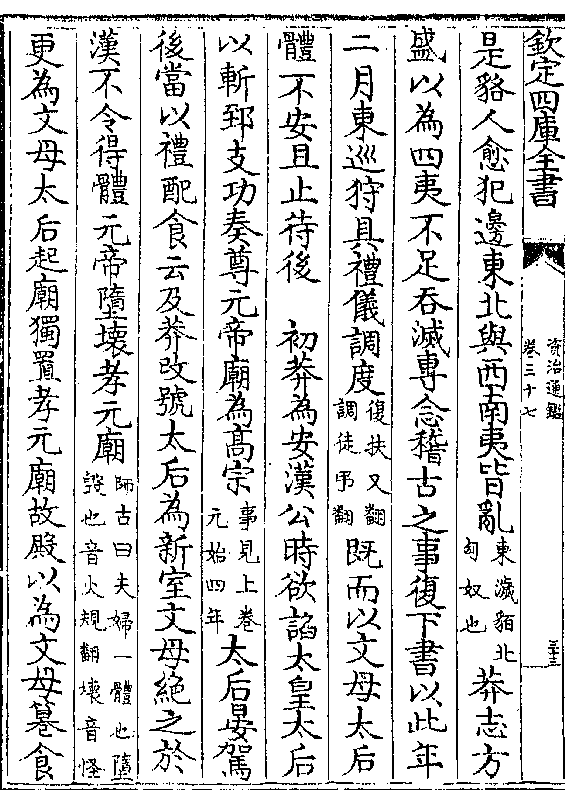 欽定四庫全書
資治通鑑
卷三十七
三十三
是貉人愈犯邊東北與西南夷皆亂東濊貊北
匈奴也莽志方
盛以為四夷不足吞滅專念稽古之事復下書以此年
二月東巡狩具禮儀調度復扶又翻
調徒弔翻既而以文母太后
體不安且止待後　初莽為安漢公時欲諂太皇太后
以斬郅支功奏尊元帝廟為高宗事見上卷
元始四年太后晏駕
後當以禮配食云及莽改號太后為新室文母絶之於
漢不令得體元帝墮壞孝元廟師古曰夫婦一體也墮
毀也音火規翻壞音怪
更為文母太后起廟獨置孝元廟故殿以為文母篹食